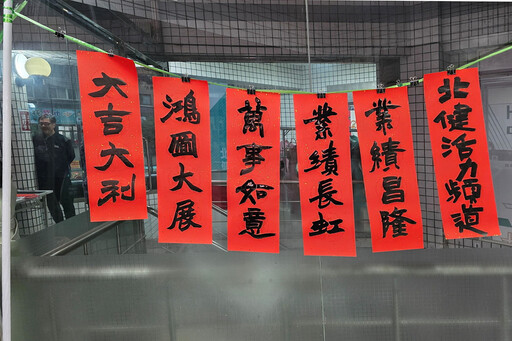 大吉大利
鴻圖大展
萬事如意
業績長虹
業績昌隆
北健活力頻道